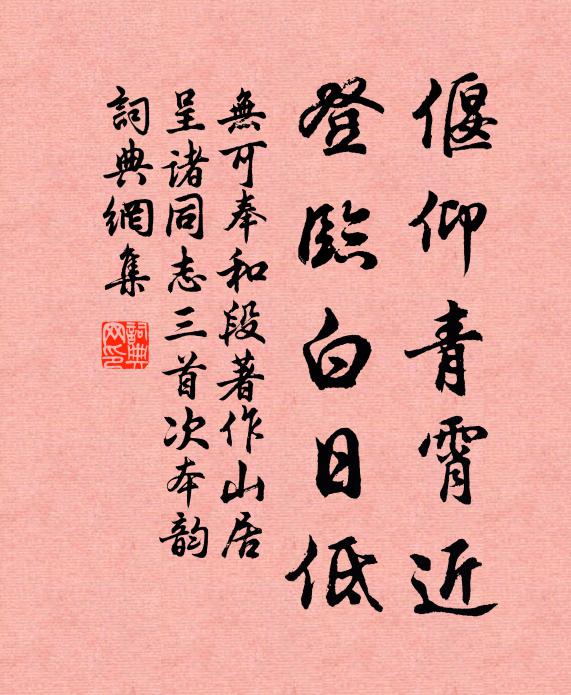 偃仰青霄近
登臨白日低
無可奉和段著作山居
呈诸同志三首次本韵
詞典網集
詞典網印